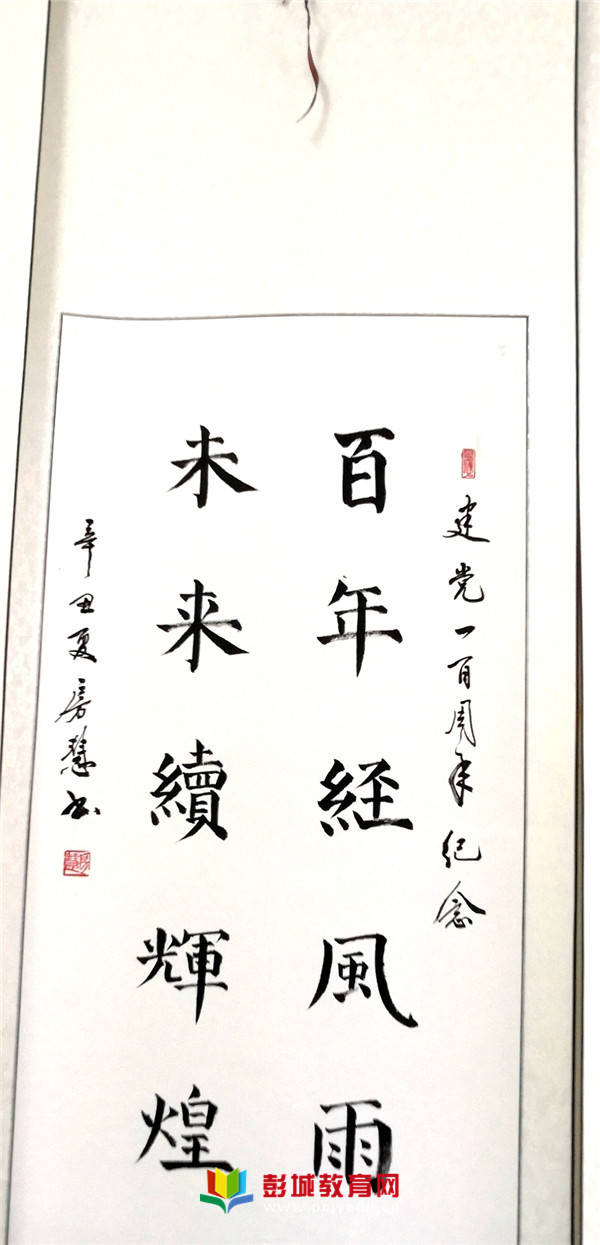 建党一百周年纪念
百年経風雨
未来續輝煌
辛丑夏房慧书
彭城教育网